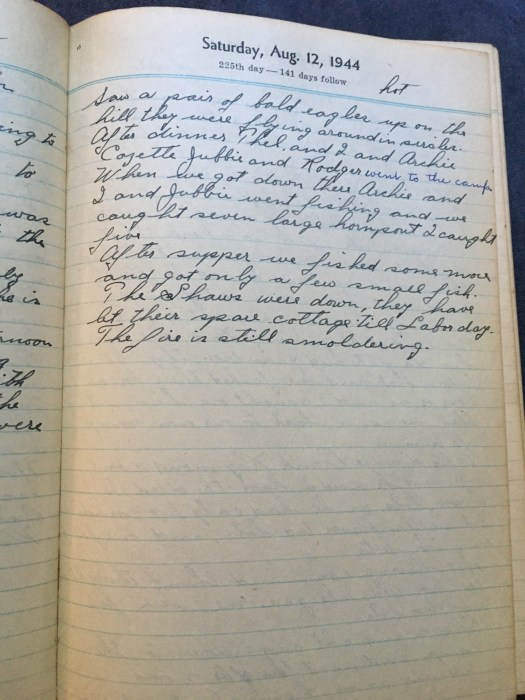 r
ing to
to
was
the
ly
he is
rnoon
9.
ith
the
were
Saturday, Aug. 12, 1944
225th day—141 days follow
hot
Saw a pair of bald eagles up on the
hill they were flying around in circles.
After dinner Thel. and I and Archie
Cozette Jubbie and Rodger went to the camp
When we got down there Archie and
I and Jubbie went fishing and we
caught seven large hornpout I caught
five
After supper we fished some more
and got only a few small fish.
The Shaws were down, they have
let their spare cottage till Labor day.
The fire is still smoldering.